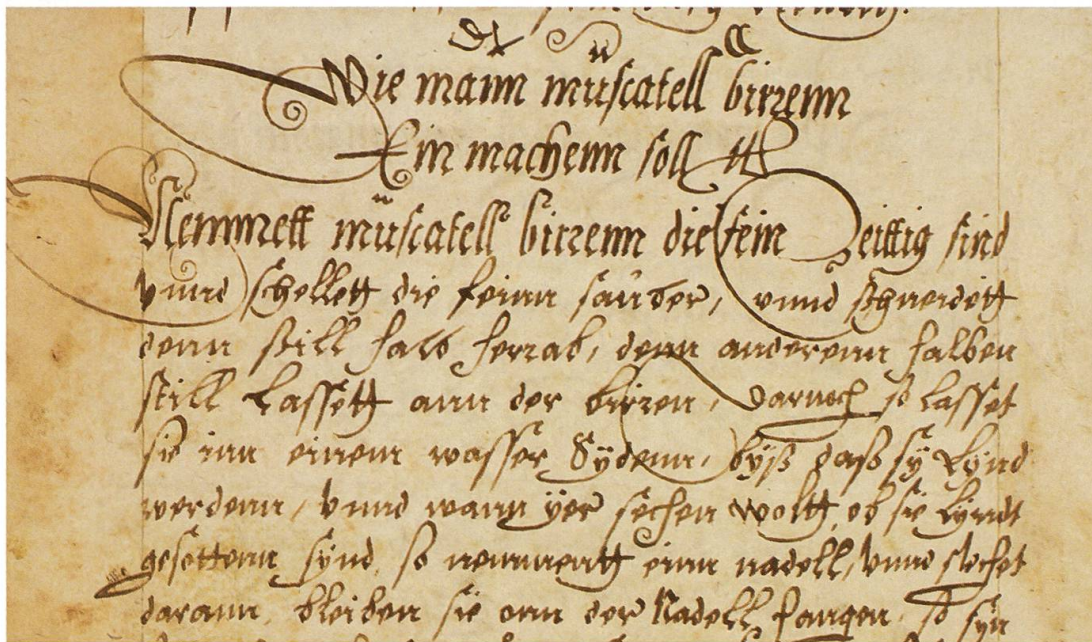 Wie mann müscatell birrenn
Ein machenn soll
Nemmett müscatell birrenn die fein Zeittig sind
vnnd schellett die feinn sauber, vnnd schneidett
denn still halb herrab, denn anderenn halben
still Lassett ann der birren, Darnoch so lasset
sie inn einem wasser Sÿdenn, byß daß sÿ Lÿnd
werdenn, vnnd wann ÿer sechen woltt, ob sie Lÿndt
gesottenn sÿnd, so nemmentt einn nadell, vnnd stechet
darann, bleiben sie ann der Nadell hangen, so sÿn